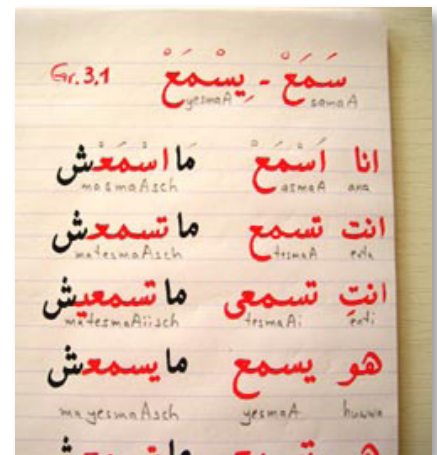 Gr. 3.1 سَمَعْ - يِسْمَعْ
samaA yesmaA
انا اَسْمَعْ مَا اسْمَعْش
ana asmaA masmaAsch
انت تسمع ما تسمعش
enta tesmaA matesmaAsch
انتِ تسمعى ما تسمعيش
enti tesmaAi matesmaAiisch
هو يسمع ما يسمعش
huwwa yesmaA mayesmaAsch